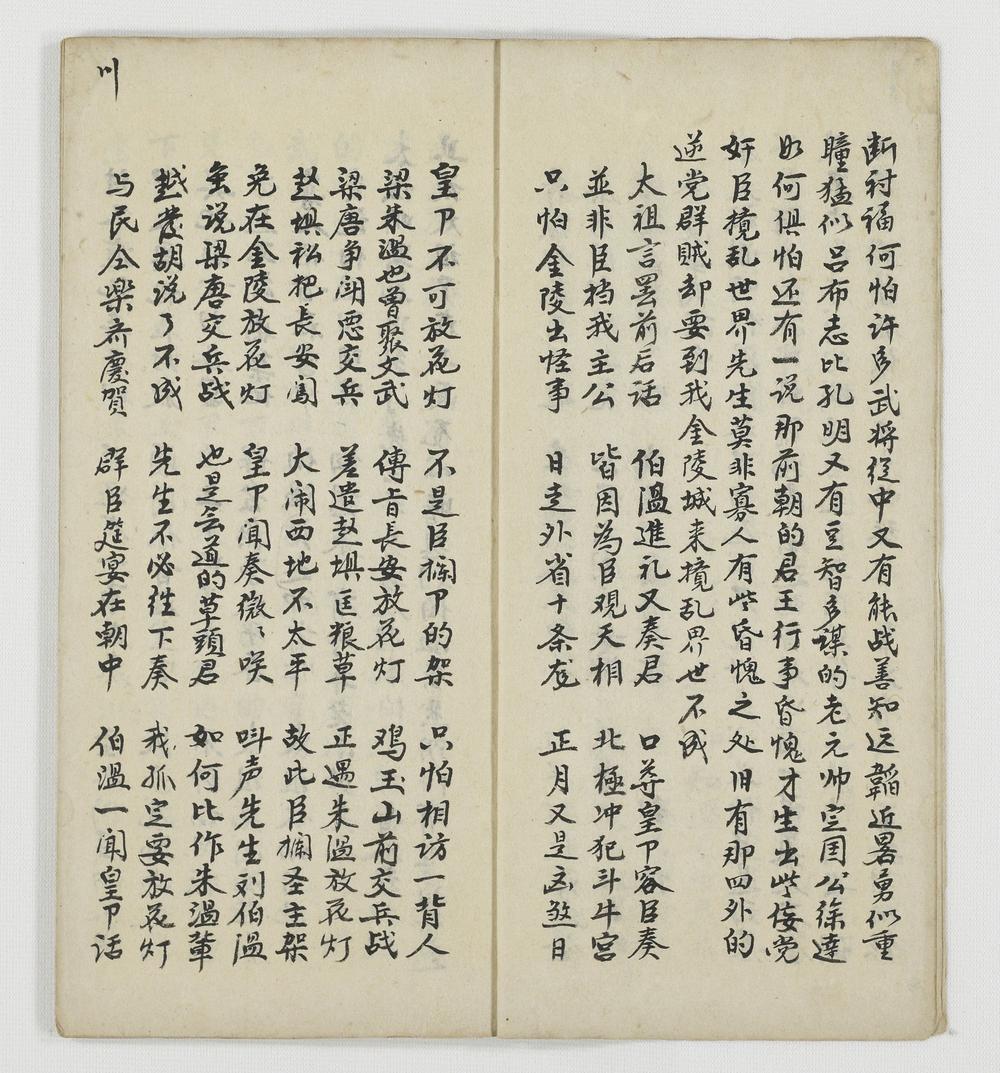 断衬福何怕许多武将从中又有能战善知远韜近畧勇似重
瞳猛似吕布志比孔明又有豆智多谋的老元帅定国公徐達
如何俱怕还有一说那前朝的君王行事昏愧才生出些侫党
奸臣搅乱世界先生莫非寡人有些昏愧之处旧有那四外的
逆党群贼却要到我金陵城来搅乱界世不成
太祖言罢前后话 伯溫進礼又奏君 口尊皇卩容臣奏
並非臣档我主公 皆因為臣观天相 北極冲犯斗牛宫
只怕金陵出怪事 日走外省十条龙 正月又是凶煞日
皇卩不可放花灯 不是臣拦卩的架 只怕相访一背人
梁朱溫也曾聚文武 傳旨長安放花灯 鸡玉山前交兵战
梁唐争闹悪交兵 差遣赵埧匡粮草 正遇朱溫放花灯
赵埧私把長安闯 大闹西地不太平 故此臣拦圣主架
免在金陵放花灯 皇卩闻奏微々咲 叫声先生刘伯溫
虽说梁唐交兵战 也是无道的草頭君 如何比作朱溫辈
越发胡说了不成 先生不必徃下奏 我孤定要放花灯
与民仝樂齐慶賀 群臣筵宴在朝中 伯溫一闻皇卩话